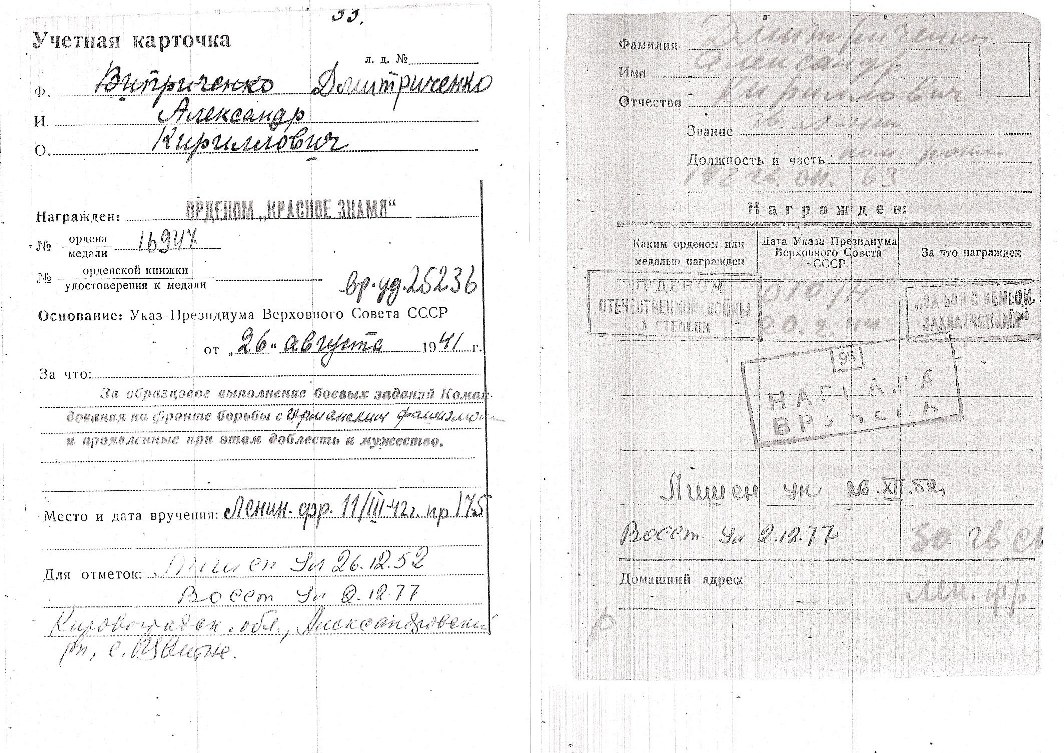 33.
Учетная карточка
л. д. №
Ф. Витриченко Дмитриченко
И. Александр
О. Кириллович
Награжден: ОРДЕНОМ „КРАСНОЕ ЗНАМЯ“
№ ордена медали 16947
№ орденской книжки удостоверения к медали вр.уд.25236
Основание: Указ Президиума Верховного Совета СССР
от „26“ августа 1941 г.
За что:
За образцовое выполнение боевых заданий Коман-
дования на фронте борьбы с германским фашизмом
и проявленные при этом доблесть и мужество.
Место и дата вручения: Ленин. фр. 11/III-42г. пр 175
Для отметок: Лишен Ук 26.12.52
Восст Ук 2.12.77
Кировоградск. обл., Александровский
рн, с.
Фамилия Дмитриченко
Имя Александр
Отчество Кириллович
Звание гв.
Должность и часть
63
Награжден:
Каким орденом или медалью награжден
Дата Указа Президиума Верховного Совета СССР
За что награжден
ОРДЕНОМ
ОТЕЧЕСТВЕННОЙ ВОЙНЫ
СТЕПЕНИ
20.9.44
Лишен ук 26.XII.52.
Восст Ук 2.12.77
30 гв ск
Домашний адрес
Лен. фр